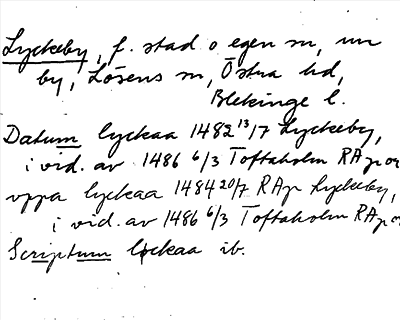 Lyckeby, f. stad o egen sn, nu
by, Lösens sn, Östra hd,
Blekinge l.
Datum lyckaa 1482 13/7 Lyckeby,
i vid. av 1486 6/3 Toftaholm RAp or
vppa lyckaa 1484 20/7 RAp Lyckeby,
i vid. av 1486 6/3 Toftaholm RAp or
Scriptum lyckaa ib.